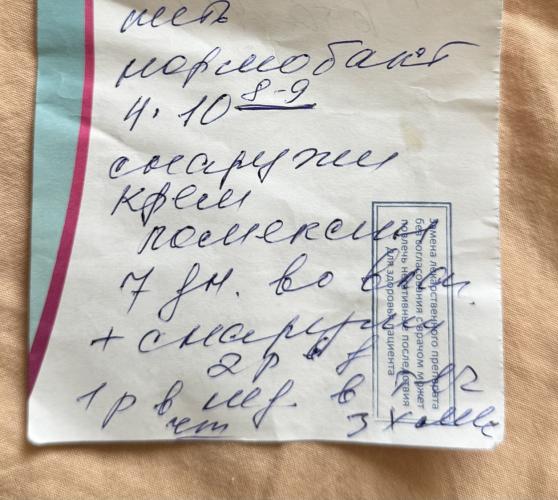 пить
нормобакт
4. 10 8-9
снаружи
крем
ломексин
7 дн. во вл.
+ снаружи
2 р
1 р в нед. в
чт
3 х
Замена лекарственного препарата
без согласования с врачом может
повлечь негативные последствия
для здоровья пациента